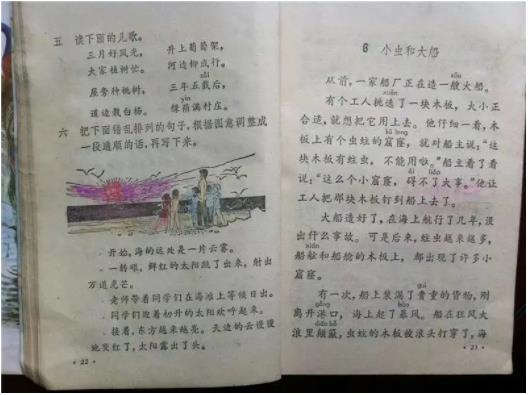 五 读下面的儿歌。
三月好风光, 井上葡萄架,
大家植树忙。 河边柳成行。
zǎi
屋旁种桃树, 三年五载后,
yīn
道边栽白杨。 绿荫满村庄。
六 把下面错乱排列的句子,根据图意调整成
一段通顺的话,再写下来。
开始,海的远处是一片云雾。
一转眼,鲜红的太阳跳了出来,射出
万道光芒。
老师带着同学们在海滩上等候日出。
同学们着初升的太阳欢呼起来。
接着,东方越来越亮。天边的云慢慢
地变红了,太阳露出了头。
·22·
6 小虫和大船
sōu
从前,一家船厂正在造一艘大船。
xuǎn
有个工人挑选了一块木板,大小正
合适,就想把它用上去。他仔细一看,木
kū long
板上有个虫蛀的窟窿,就对船主说:“这
块木板有蛀虫,不能用啦。”船主看了看
ài liǎo
说:“这么个小窟窿,碍不了大事。”他让
工人把那块木板钉到船上去了。
大船造好了,在海上航行了几年,没
出什么事故。可是后来,蛀虫越来越多,
xián
船舷和船舱的木板上,都出现了许多小
窟窿。
guì
有一次,船上装满了贵重的货物,刚
gǎng bào
离开港口,海上起了暴风。船在狂风大
diān bǒ
浪里颠簸,虫蛀的木板被浪头打穿了,海
·23·